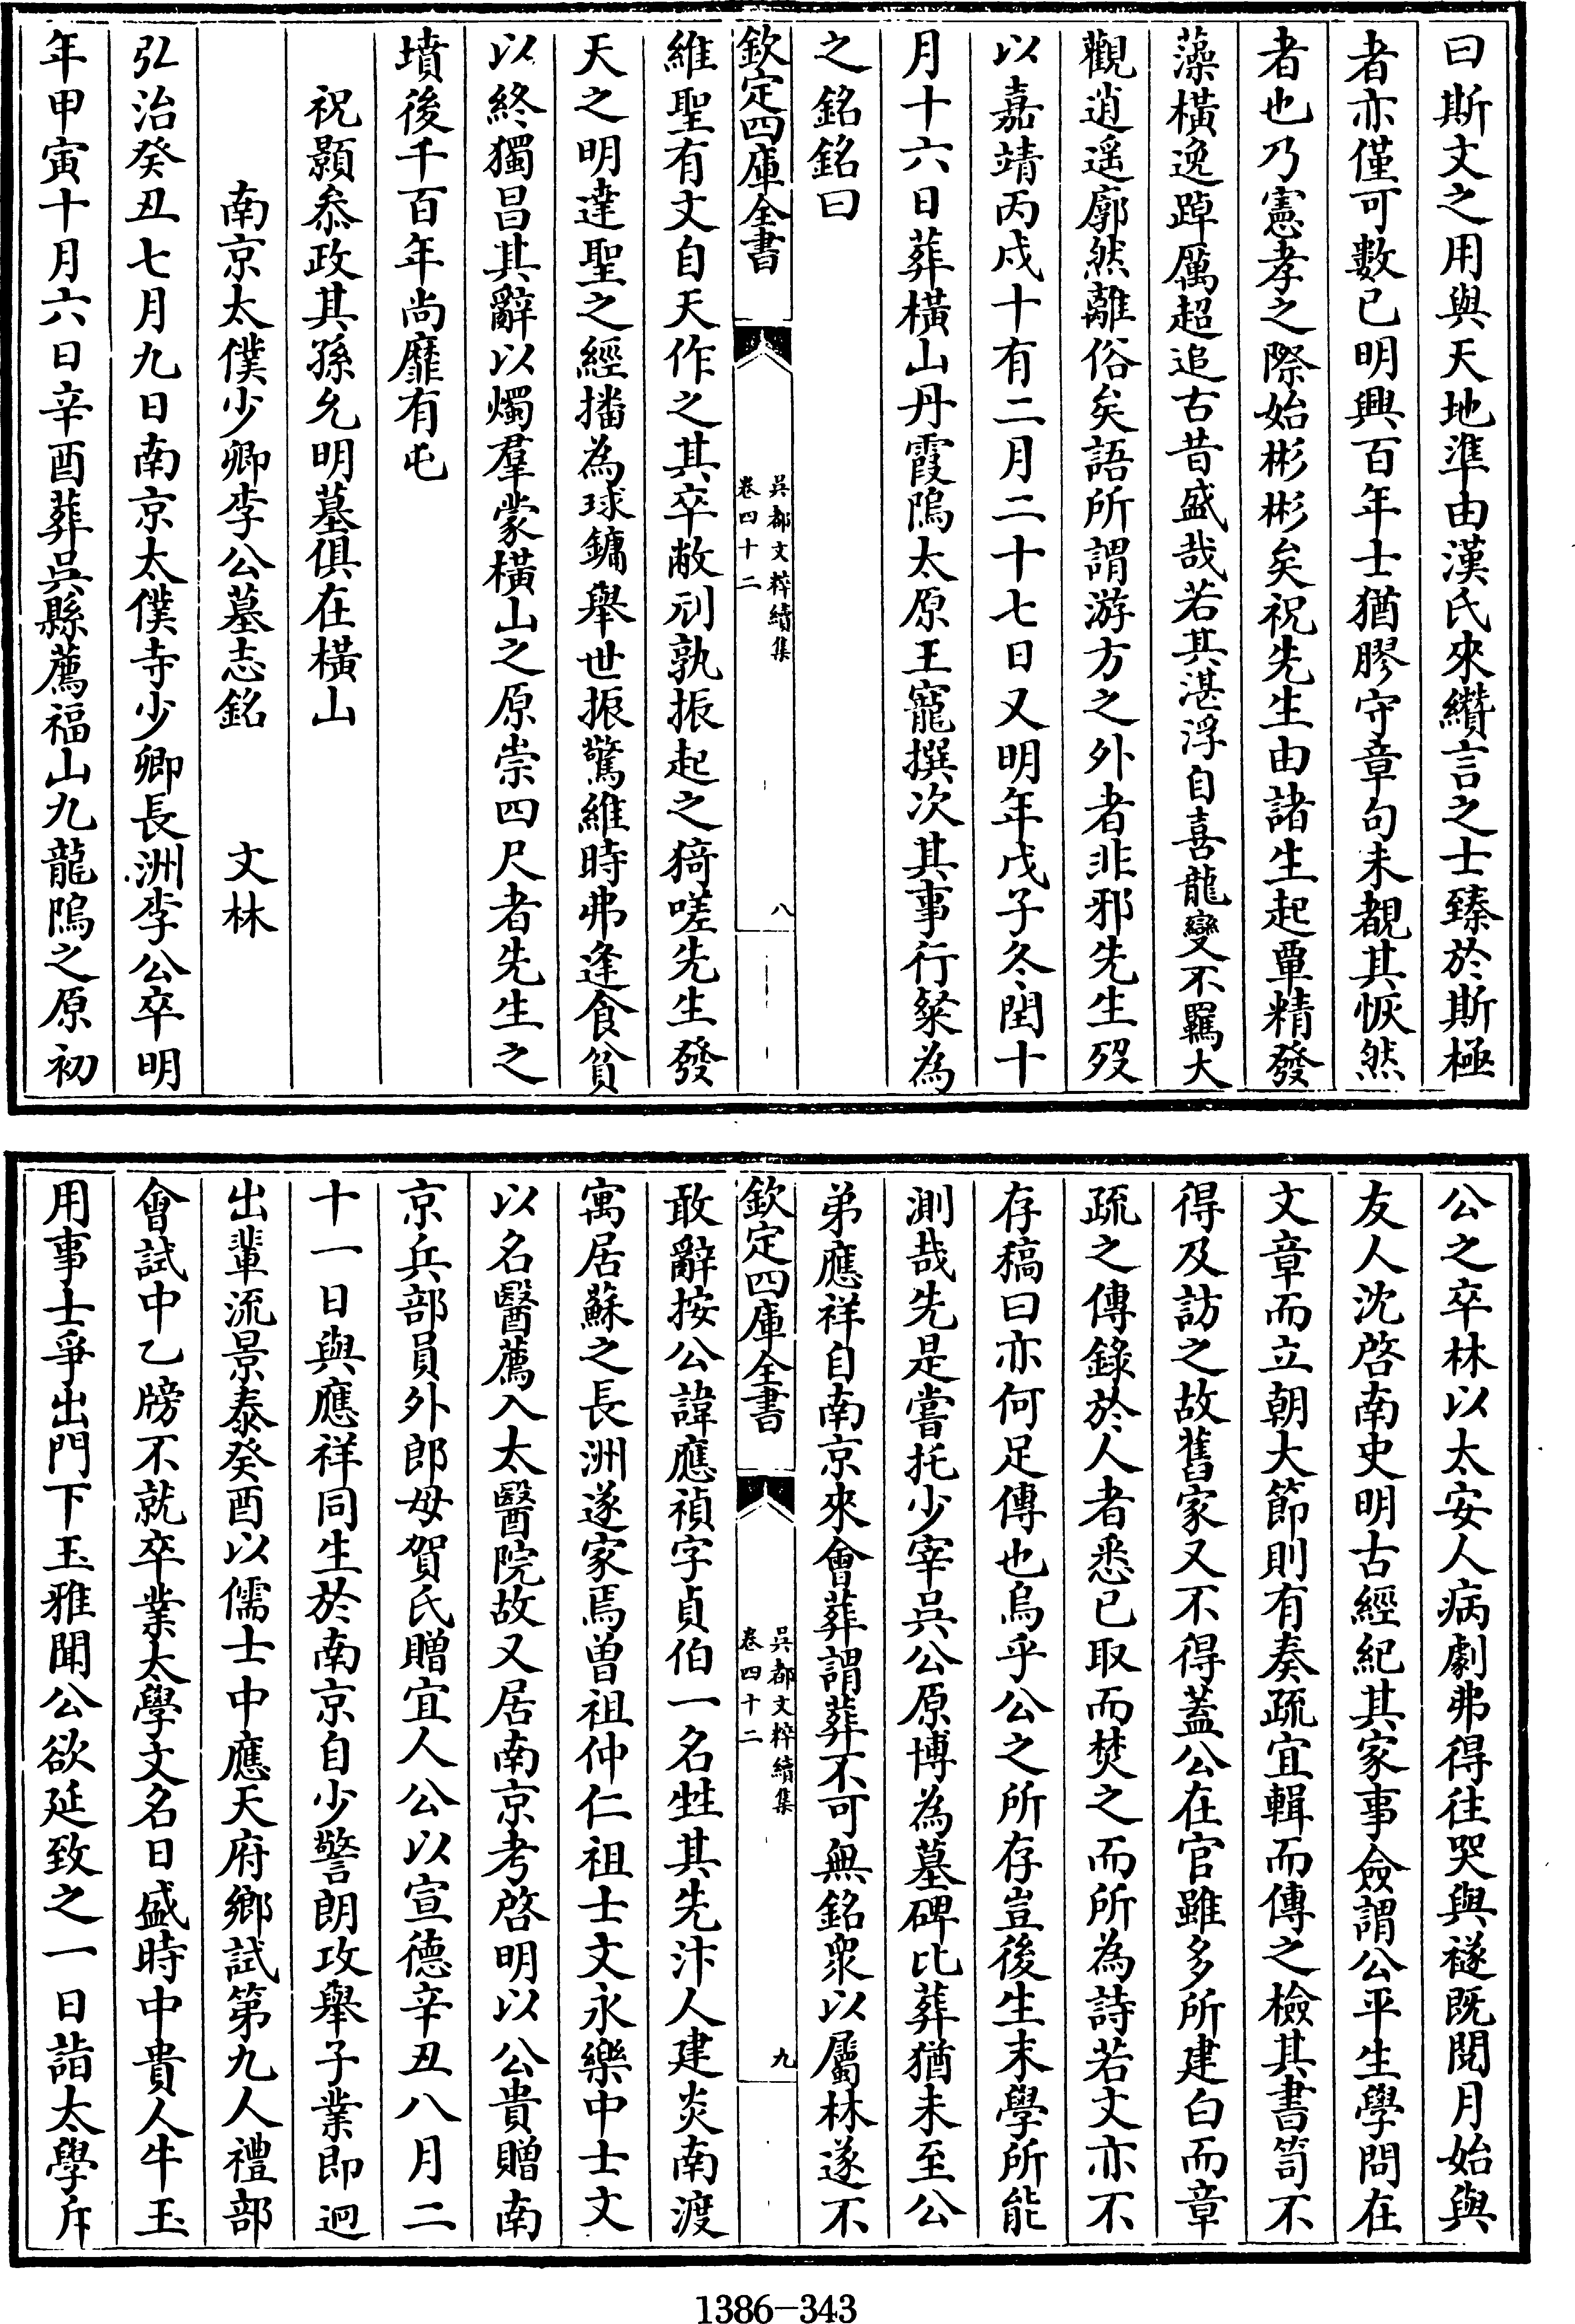 曰斯文之用與天地準由漢氏來纘言之士臻於斯極
者亦僅可數已明興百年士猶膠守章句未覩其恢然
者也乃憲孝之際始彬彬矣祝先生由諸生起覃精發
藻橫逸踔厲超追古昔盛哉若其湛浮自喜龍變不羈大
觀逍遥廓然離俗矣語所謂游方之外者非邪先生歿
以嘉靖丙戌十有二月二十七日又明年戊子冬閏十
月十六日葬橫山丹霞隖太原王寵撰次其事行粲為
之銘銘曰
欽定四庫全書
吳都文粹續集
卷四十二
八
維聖有文自天作之其卒敝刓孰振起之猗嗟先生發
天之明達聖之經播為球鏞舉世振驚維時弗逢食貧
以終獨昌其辭以燭羣蒙橫山之原崇四尺者先生之
墳後千百年尚靡有屯
祝顥叅政其孫允明墓俱在橫山
南京太僕少卿李公墓志銘 文林
弘治癸丑七月九日南京太僕寺少卿長洲李公卒明
年甲寅十月六日辛酉葬吳縣薦福山九龍隖之原初
公之卒林以太安人病劇弗得往哭與襚既閱月始與
友人沈啓南史明古經紀其家事僉謂公平生學問在
文章而立朝大節則有奏疏宜輯而傳之檢其書笥不
得及訪之故舊家又不得葢公在官雖多所建白而章
疏之傳錄於人者悉已取而焚之而所為詩若文亦不
存稿曰亦何足傳也烏乎公之所存豈後生末學所能
測哉先是嘗托少宰吳公原博為墓碑比葬猶未至公
弟應祥自南京來會葬謂葬不可無銘衆以屬林遂不
欽定四庫全書
吳都文粹續集
卷四十二
九
敢辭按公諱應禎字貞伯一名甡其先汴人建炎南渡
寓居蘇之長洲遂家焉曽祖仲仁祖士文永樂中士文
以名醫薦入太醫院故又居南京考啓明以公貴贈南
京兵部員外郎母賀氏贈宜人公以宣德辛丑八月二
十一日與應祥同生於南京自少警朗攻舉子業即迥
出輩流景泰癸酉以儒士中應天府鄉試第九人禮部
會試中乙牓不就卒業太學文名日盛時中貴人牛玉
用事士爭出門下玉雅聞公欲延致之一日詣太學斥
1386-343